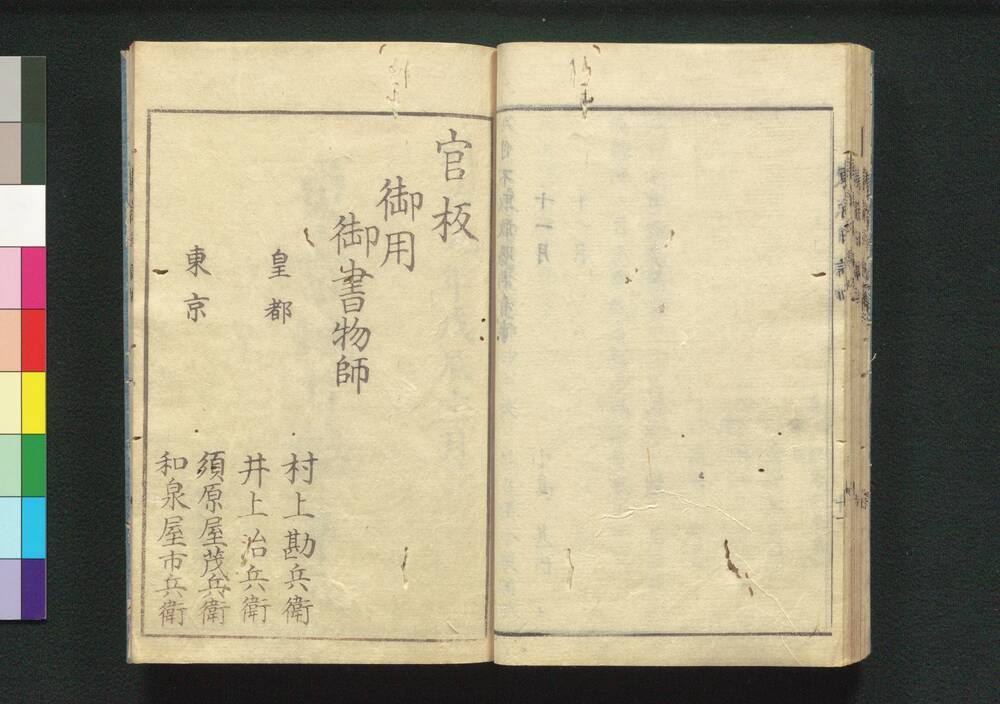 官板
御用
御書物師
皇都
村上勘兵衛
井上治兵衛
東京
須原屋茂兵衛
和泉屋市兵衛